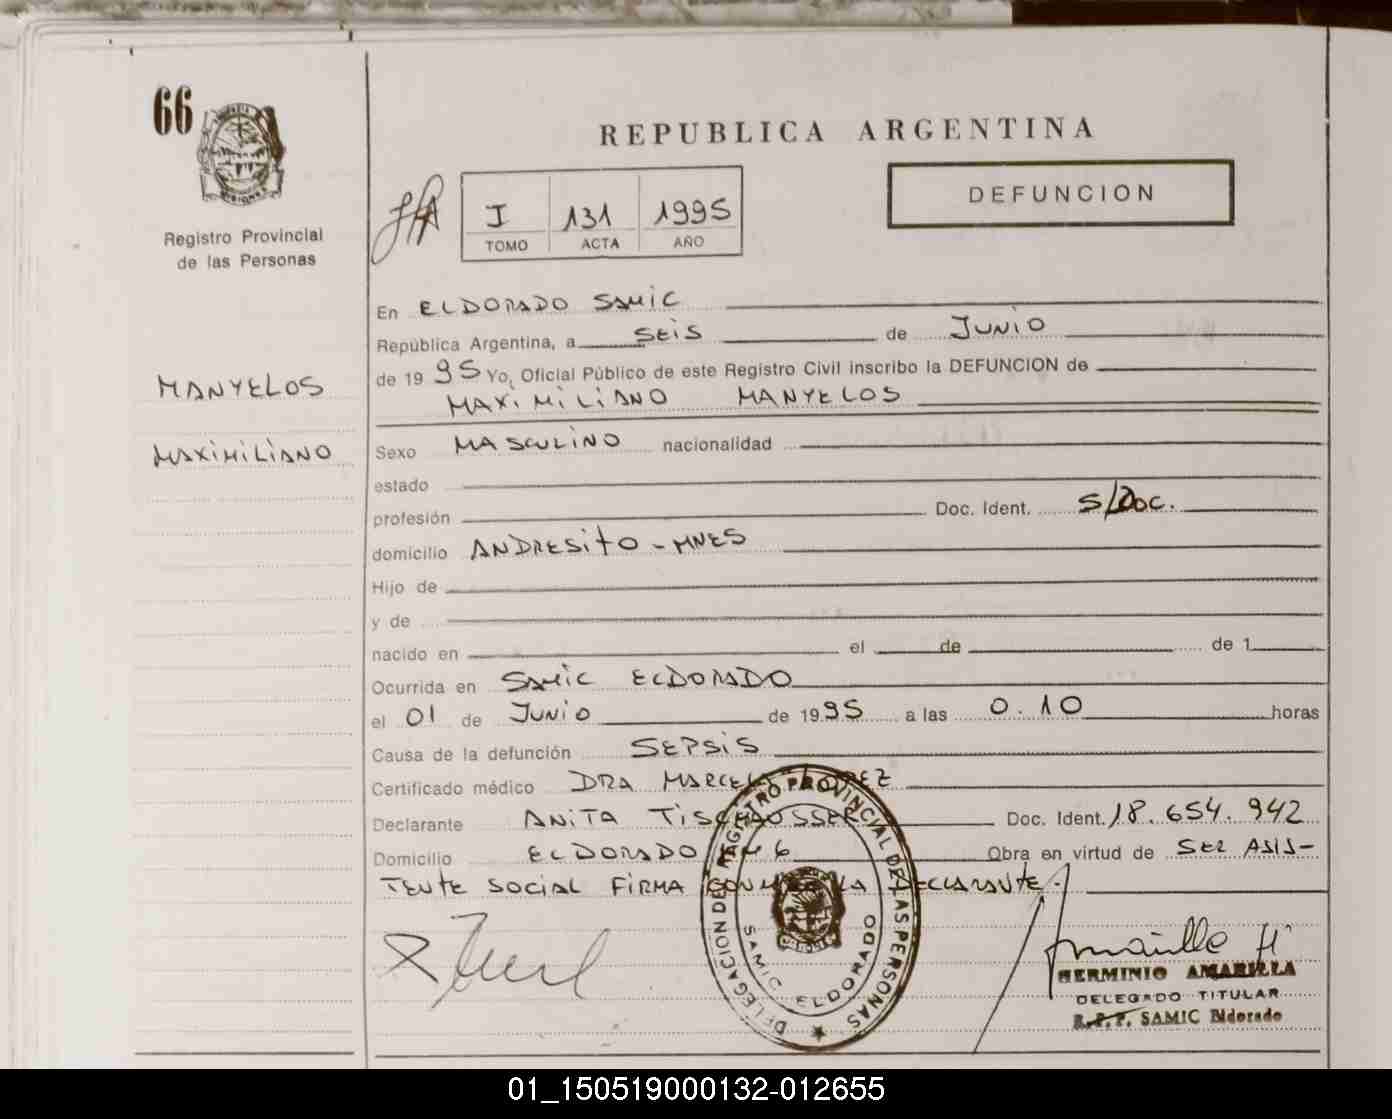 66
REPUBLICA ARGENTINA
DEFUNCION
Registro Provincial
de las Personas
I 131 1995
TOMO ACTA AÑO
En ELDORADO SAMIC
República Argentina, a SEIS de JUNIO
de 1995 Yo, Oficial Público de este Registro Civil inscribo la DEFUNCION de
MAXIMILIANO MANYELOS
MANYELOS
MAXIMILIANO
Sexo MASCULINO nacionalidad
estado
profesión Doc. Ident. S/Doc.
domicilio ANDRESITO - MNES
Hijo de
y de
nacido en el de de 1
Ocurrida en SAMIC ELDORADO
el 01 de JUNIO de 1995 a las 0.10 horas
Causa de la defunción SEPSIS
Certificado médico DRA MARCELA
Declarante ANITA Doc. Ident. 18.654.942
Domicilio ELDORADO KM 6 Obra en virtud de SER ASIS-
TENTE SOCIAL FIRMA LA DECLARANTE.
DELEGACION DEL REGISTRO PROVINCIAL DE LAS PERSONAS
SAMIC ELDORADO
HERMINIO AMARILLA
DELEGADO TITULAR
R.P.P. SAMIC Eldorado
01_150519000132-012655